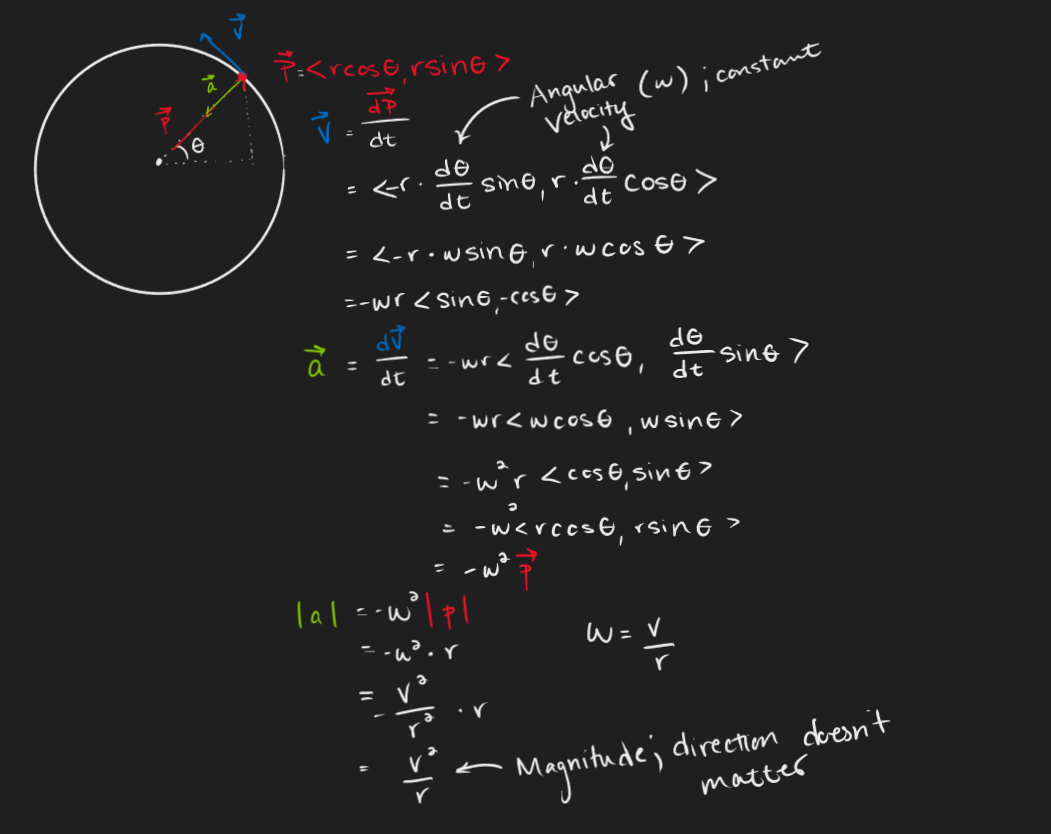 V⃗
P⃗ = <rcosθ, rsinθ>
a⃗
P⃗
θ
Angular (w) ; constant
velocity
V⃗ = dP⃗/dt
= <-r · dθ/dt sinθ, r · dθ/dt cosθ>
= <-r · wsinθ, r · wcosθ>
= -wr <sinθ, -cosθ>
a⃗ = dV⃗/dt = -wr < dθ/dt cosθ, dθ/dt sinθ >
= -wr <wcosθ, wsinθ>
= -w² r <cosθ, sinθ>
= -w² <rcosθ, rsinθ>
= -w² P⃗
|a| = -w² |p|
= -w² · r
w = v/r
= - v²/r² · r
= v²/r ← Magnitude; direction doesn't
matter